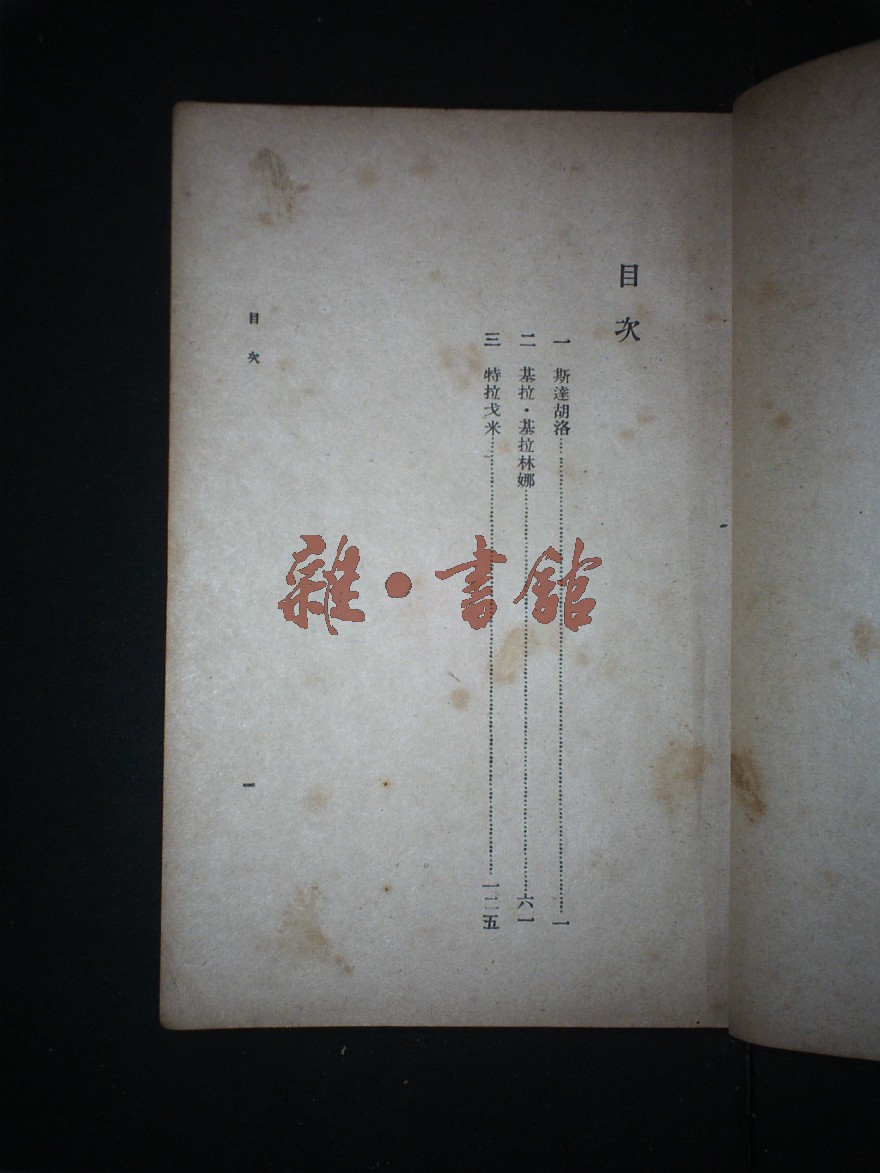 目次
一 斯達胡洛……一
二 基拉・基拉林娜……六一
三 特拉戈米……一二五
目次
一
雜・書館